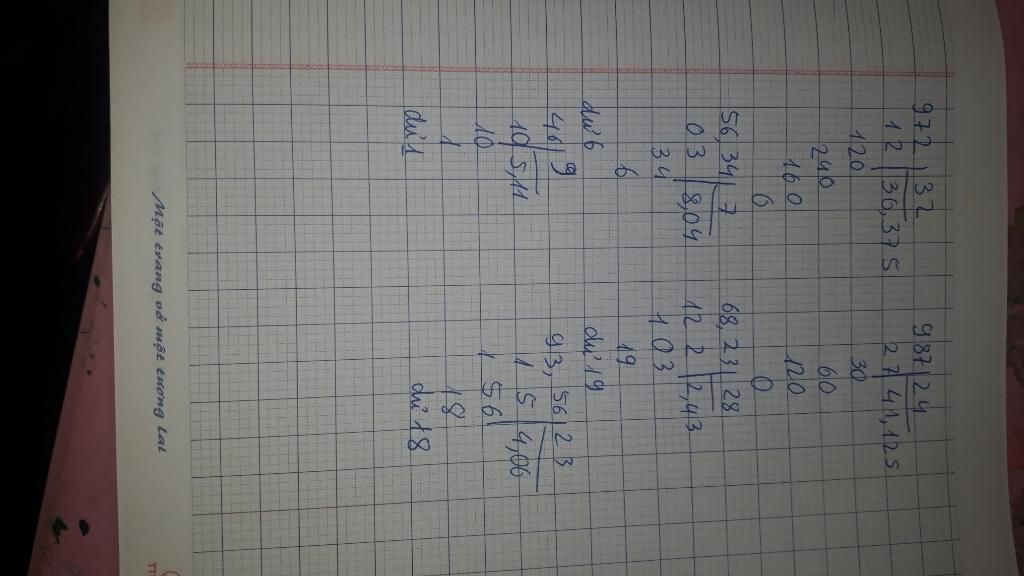 972 32 987 24
12 36,375 27 41,125
120 30
240 60
160 120
6 0
56,34 7 68,23 28
03 8,04 12 2 2,43
34 103
6 19
dư 6 dư 19
46 9 93,56 23
10 5,11 1 5 4,06
10 1 56
1 18
dư 1 dư 18
Một trang vở một tương lai